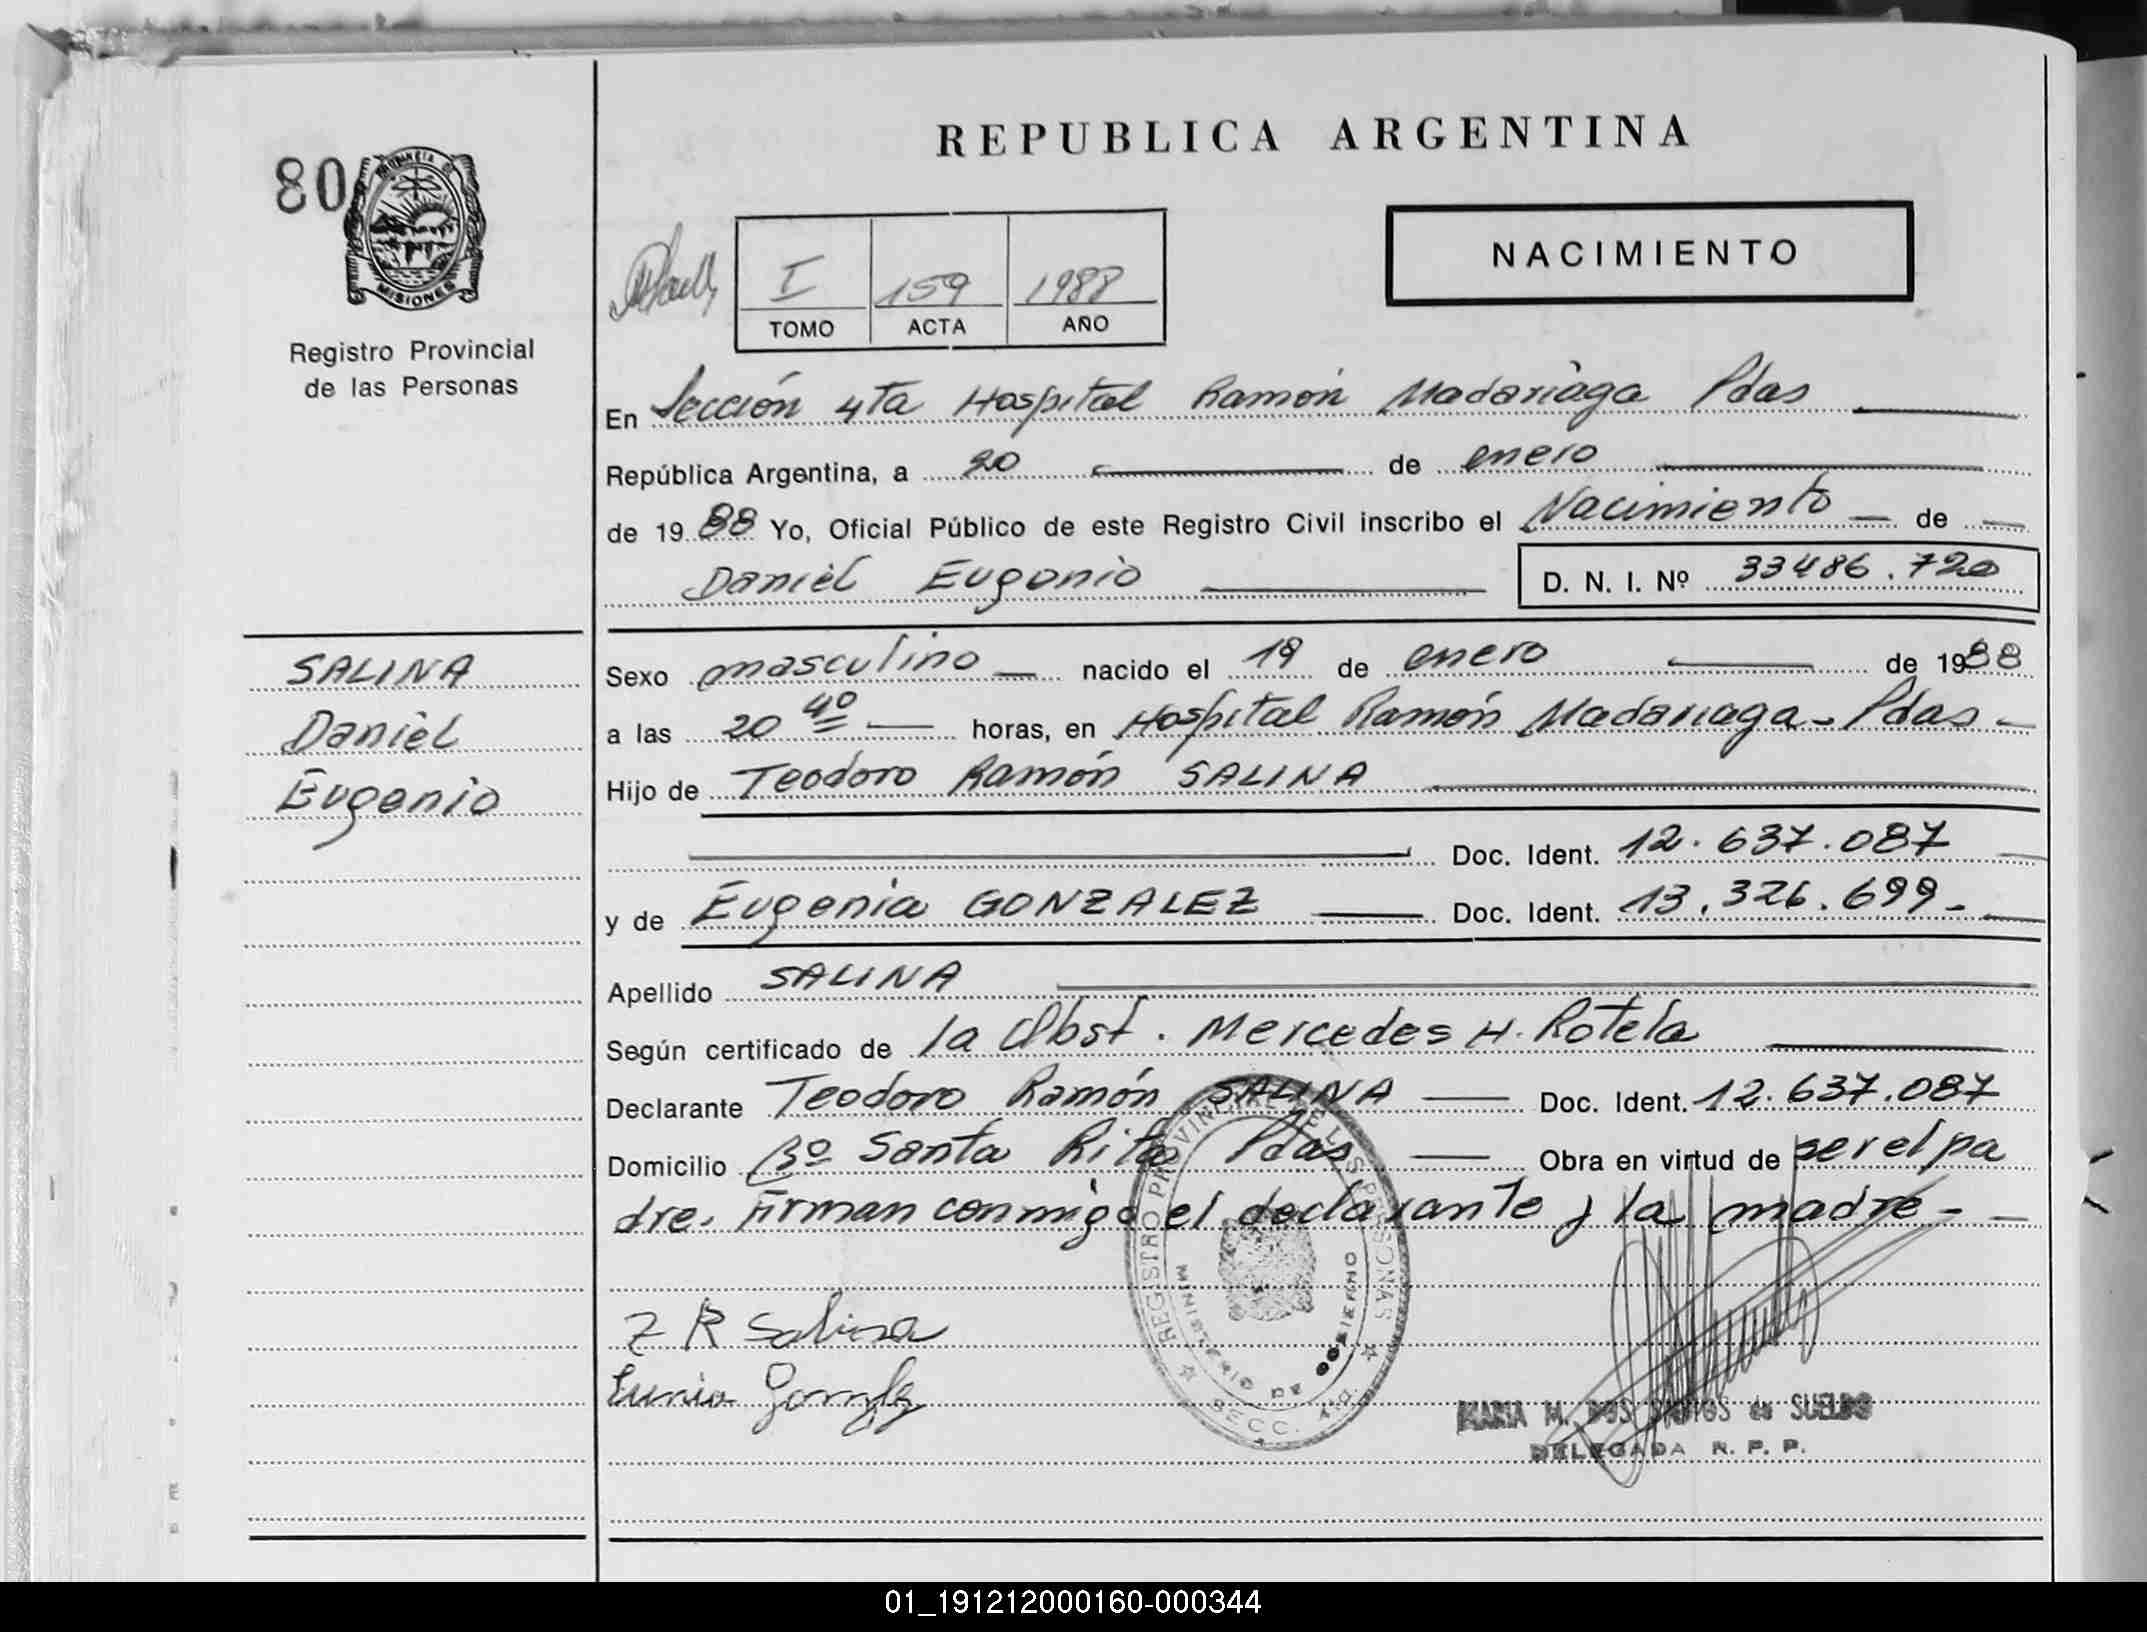 REPUBLICA ARGENTINA
80
PROVINCIA DE
MISIONES
Registro Provincial
de las Personas
I 159 1988
TOMO ACTA AÑO
NACIMIENTO
En Sección 4ta Hospital Ramón Madariaga Pdas
República Argentina, a 20 de enero
de 1988 Yo, Oficial Público de este Registro Civil inscribo el Nacimiento de
Daniel Eugenio
D. N. I. Nº 33486.720
SALINA
Daniel
Eugenio
Sexo masculino nacido el 19 de enero de 1988
a las 20 40 horas, en Hospital Ramón Madariaga - Pdas -
Hijo de Teodoro Ramón SALINA
Doc. Ident. 12.637.087
y de Eugenia GONZALEZ Doc. Ident. 13.326.699.-
Apellido SALINA
Según certificado de la Obst. Mercedes H. Rotela
Declarante Teodoro Ramón SALINA Doc. Ident. 12.637.087
Domicilio Bº Santa Rita Pdas Obra en virtud de ser el pa
dre. Firman conmigo el declarante y la madre -
REGISTRO PROVINCIAL DE LAS PERSONAS
MINISTERIO DE GOBIERNO
SECC. 4a.
T R Salina
MARIA M. DOS SANTOS de SUELDO
DELEGADA R. P. P.
01_191212000160-000344